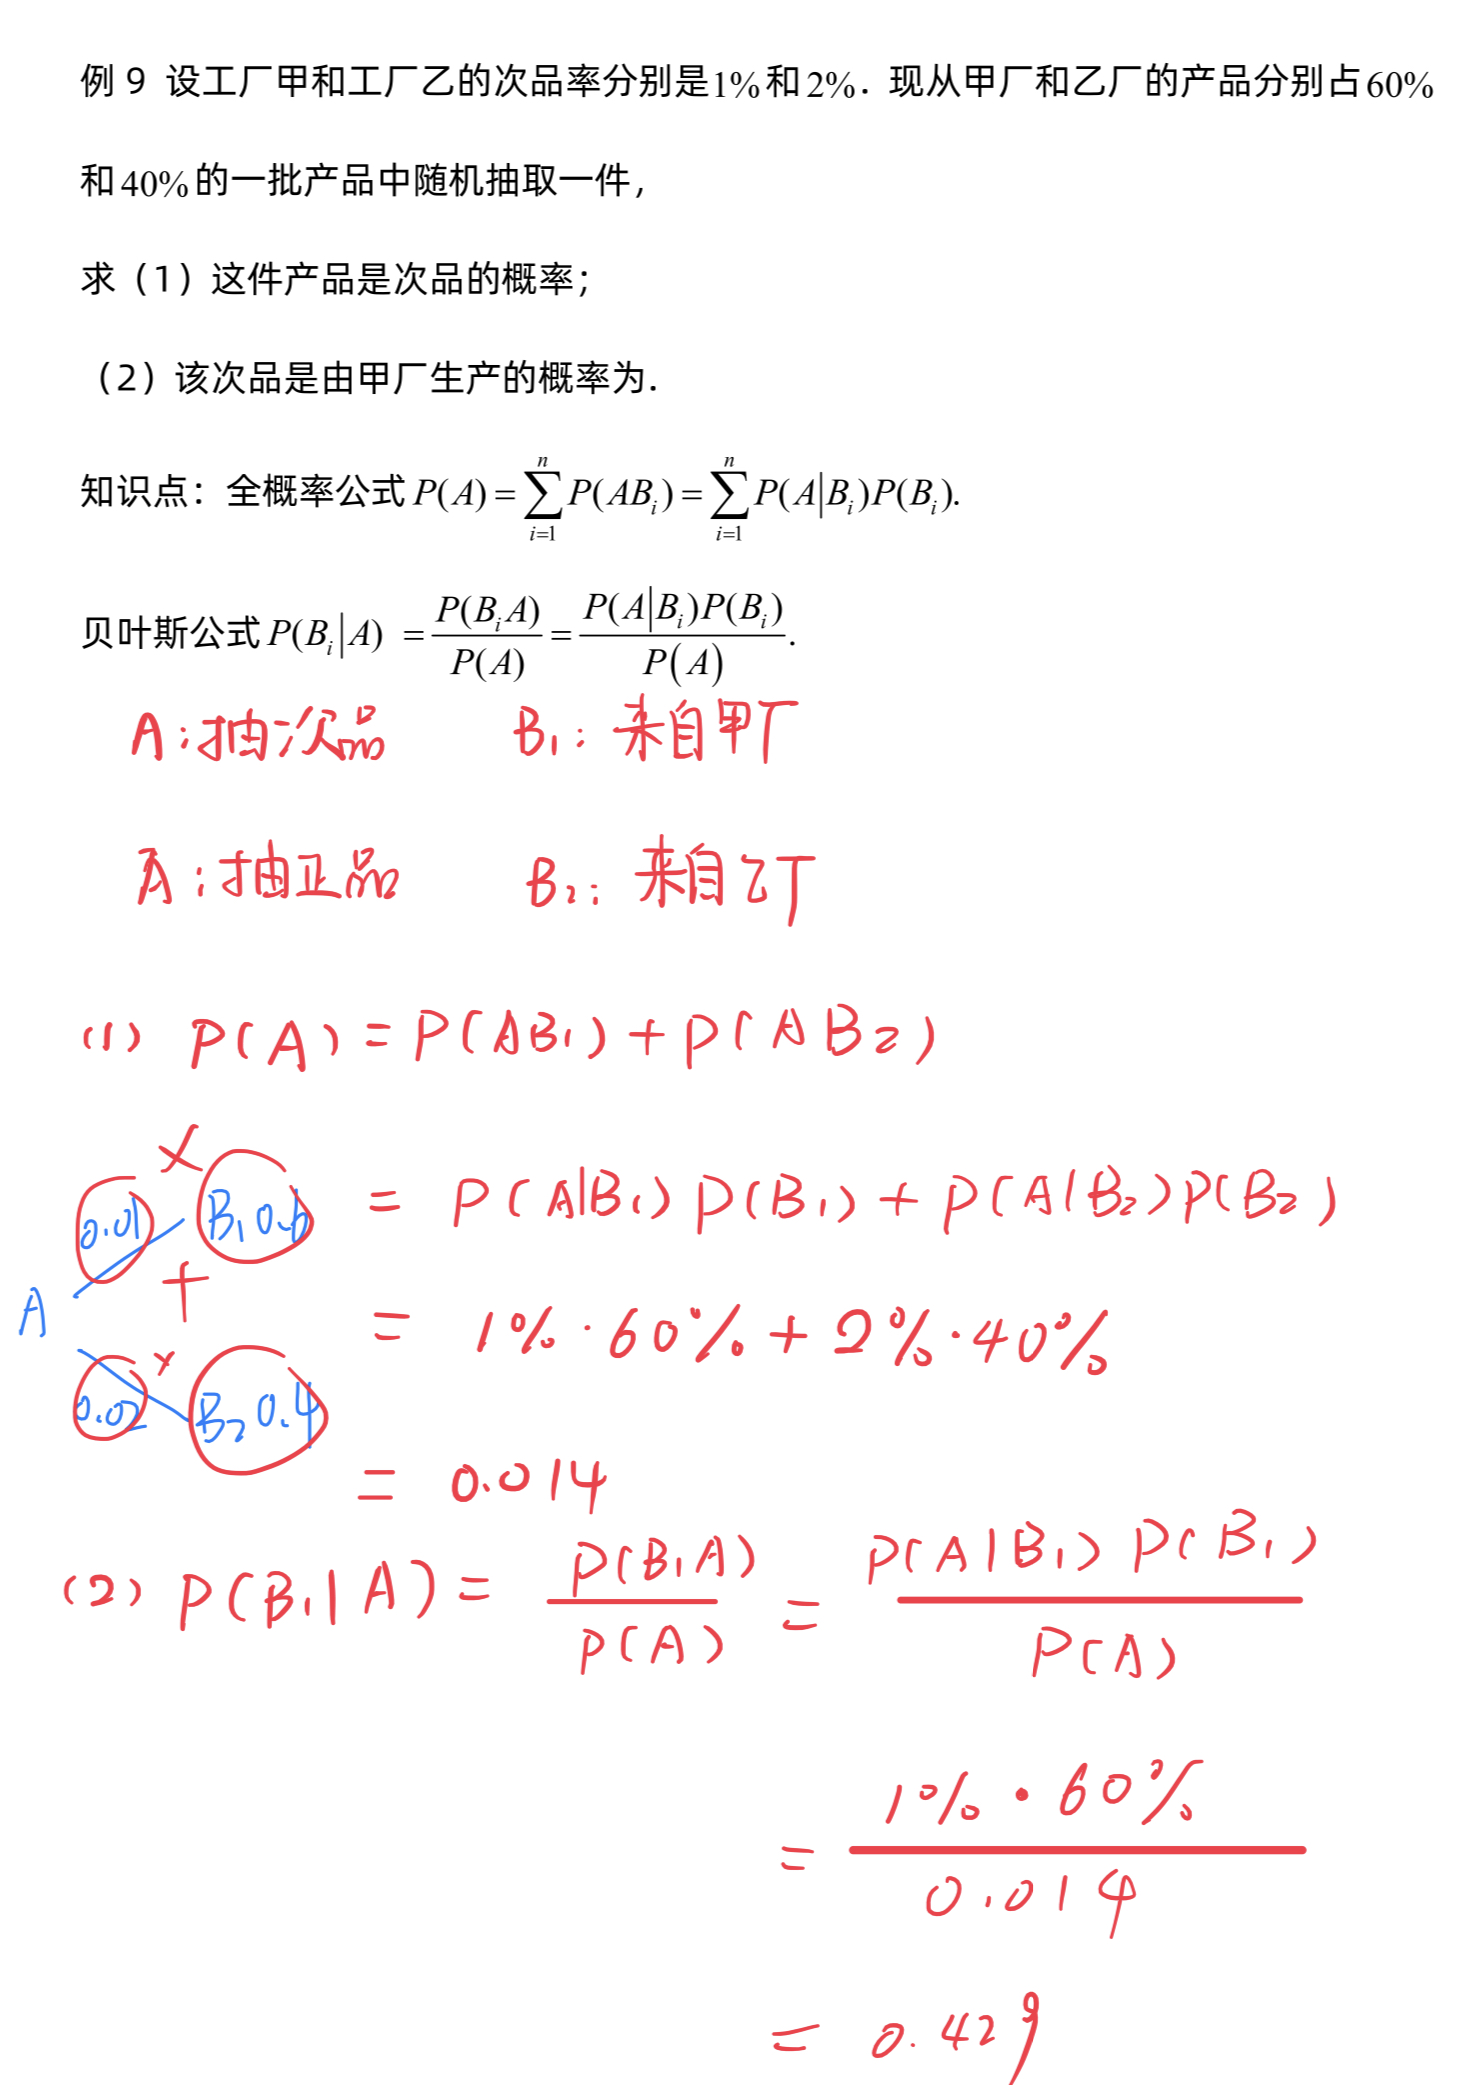 例 9 设工厂甲和工厂乙的次品率分别是1%和2%．现从甲厂和乙厂的产品分别占60%
和40%的一批产品中随机抽取一件，
求（1）这件产品是次品的概率；
（2）该次品是由甲厂生产的概率为.
知识点：全概率公式 P(A) = \sum_{i=1}^{n} P(AB_i) = \sum_{i=1}^{n} P(A|B_i)P(B_i).
贝叶斯公式 P(B_i|A) = \frac{P(B_iA)}{P(A)} = \frac{P(A|B_i)P(B_i)}{P(A)}.
A：抽次品 B₁：来自甲厂
Ā：抽正品 B₂：来自乙厂
(1) P(A) = P(AB₁) + P(AB₂)
= P(A|B₁) P(B₁) + P(A|B₂) P(B₂)
× 0.01 B₁ 0.6
+
A
= 1% · 60% + 2% · 40%
× 0.02 B₂ 0.4
= 0.014
(2) P(B₁|A) = \frac{P(B₁A)}{P(A)} = \frac{P(A|B₁) P(B₁)}{P(A)}
= \frac{1% · 60%}{0.014}
= 0.429